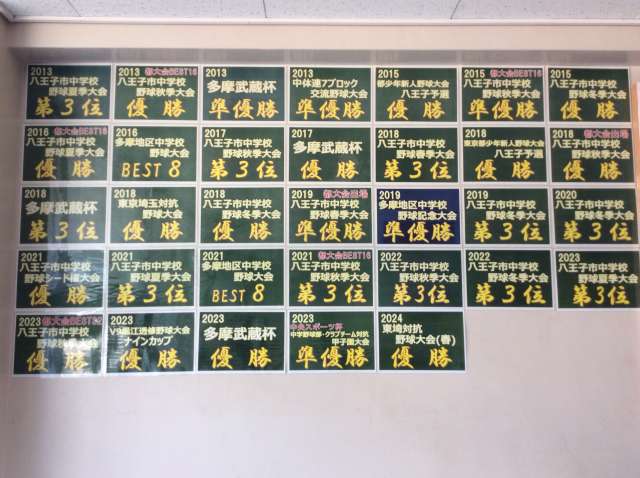 2013
八王子市中学校
野球夏季大会
第3位
2013 都大会BEST16
八王子市中学校
野球秋季大会
優勝
2013
多摩武蔵杯
準優勝
2013
中体連7ブロック
交流野球大会
準優勝
2015
都少年新人野球大会
八王子予選
準優勝
2015 都大会BEST16
八王子市中学校
野球秋季大会
準優勝
2015
八王子市中学校
野球冬季大会
準優勝
2016 都大会BEST16
八王子市中学校
野球夏季大会
優勝
2016
多摩地区中学校
野球大会
BEST 8
2017
八王子市中学校
野球秋季大会
第3位
2017
多摩武蔵杯
優勝
2018
八王子市中学校
野球春季大会
第3位
2018
東京都少年新人野球大会
八王子予選
優勝
2018 都大会出場
八王子市中学校
野球秋季大会
優勝
2018
多摩武蔵杯
第3位
2018
東京埼玉対抗
野球大会
優勝
2018
八王子市中学校
野球冬季大会
優勝
2019 都大会出場
八王子市中学校
野球春季大会
準優勝
2019
多摩地区中学校
野球記念大会
準優勝
2019
八王子市中学校
野球冬季大会
第3位
2020
八王子市中学校
野球冬季大会
第3位
2021
八王子市中学校
野球シード権大会
優勝
2021
八王子市中学校
野球夏季大会
第3位
2021
多摩地区中学校
野球大会
BEST 8
2021 都大会BEST16
八王子市中学校
野球秋季大会
第3位
2022
八王子市中学校
野球秋季大会
第3位
2022
八王子市中学校
野球冬季大会
第3位
2023
八王子市中学校
野球夏季大会
第3位
2023 都大会BEST32
八王子市中学校
野球秋季大会
優勝
2023
野球大会
ナインカップ
優勝
2023
多摩武蔵杯
優勝
2023
中央スポーツ杯
中学野球部・クラブチーム対抗
甲子園大会
準優勝
2024
東埼対抗
野球大会(春)
優勝